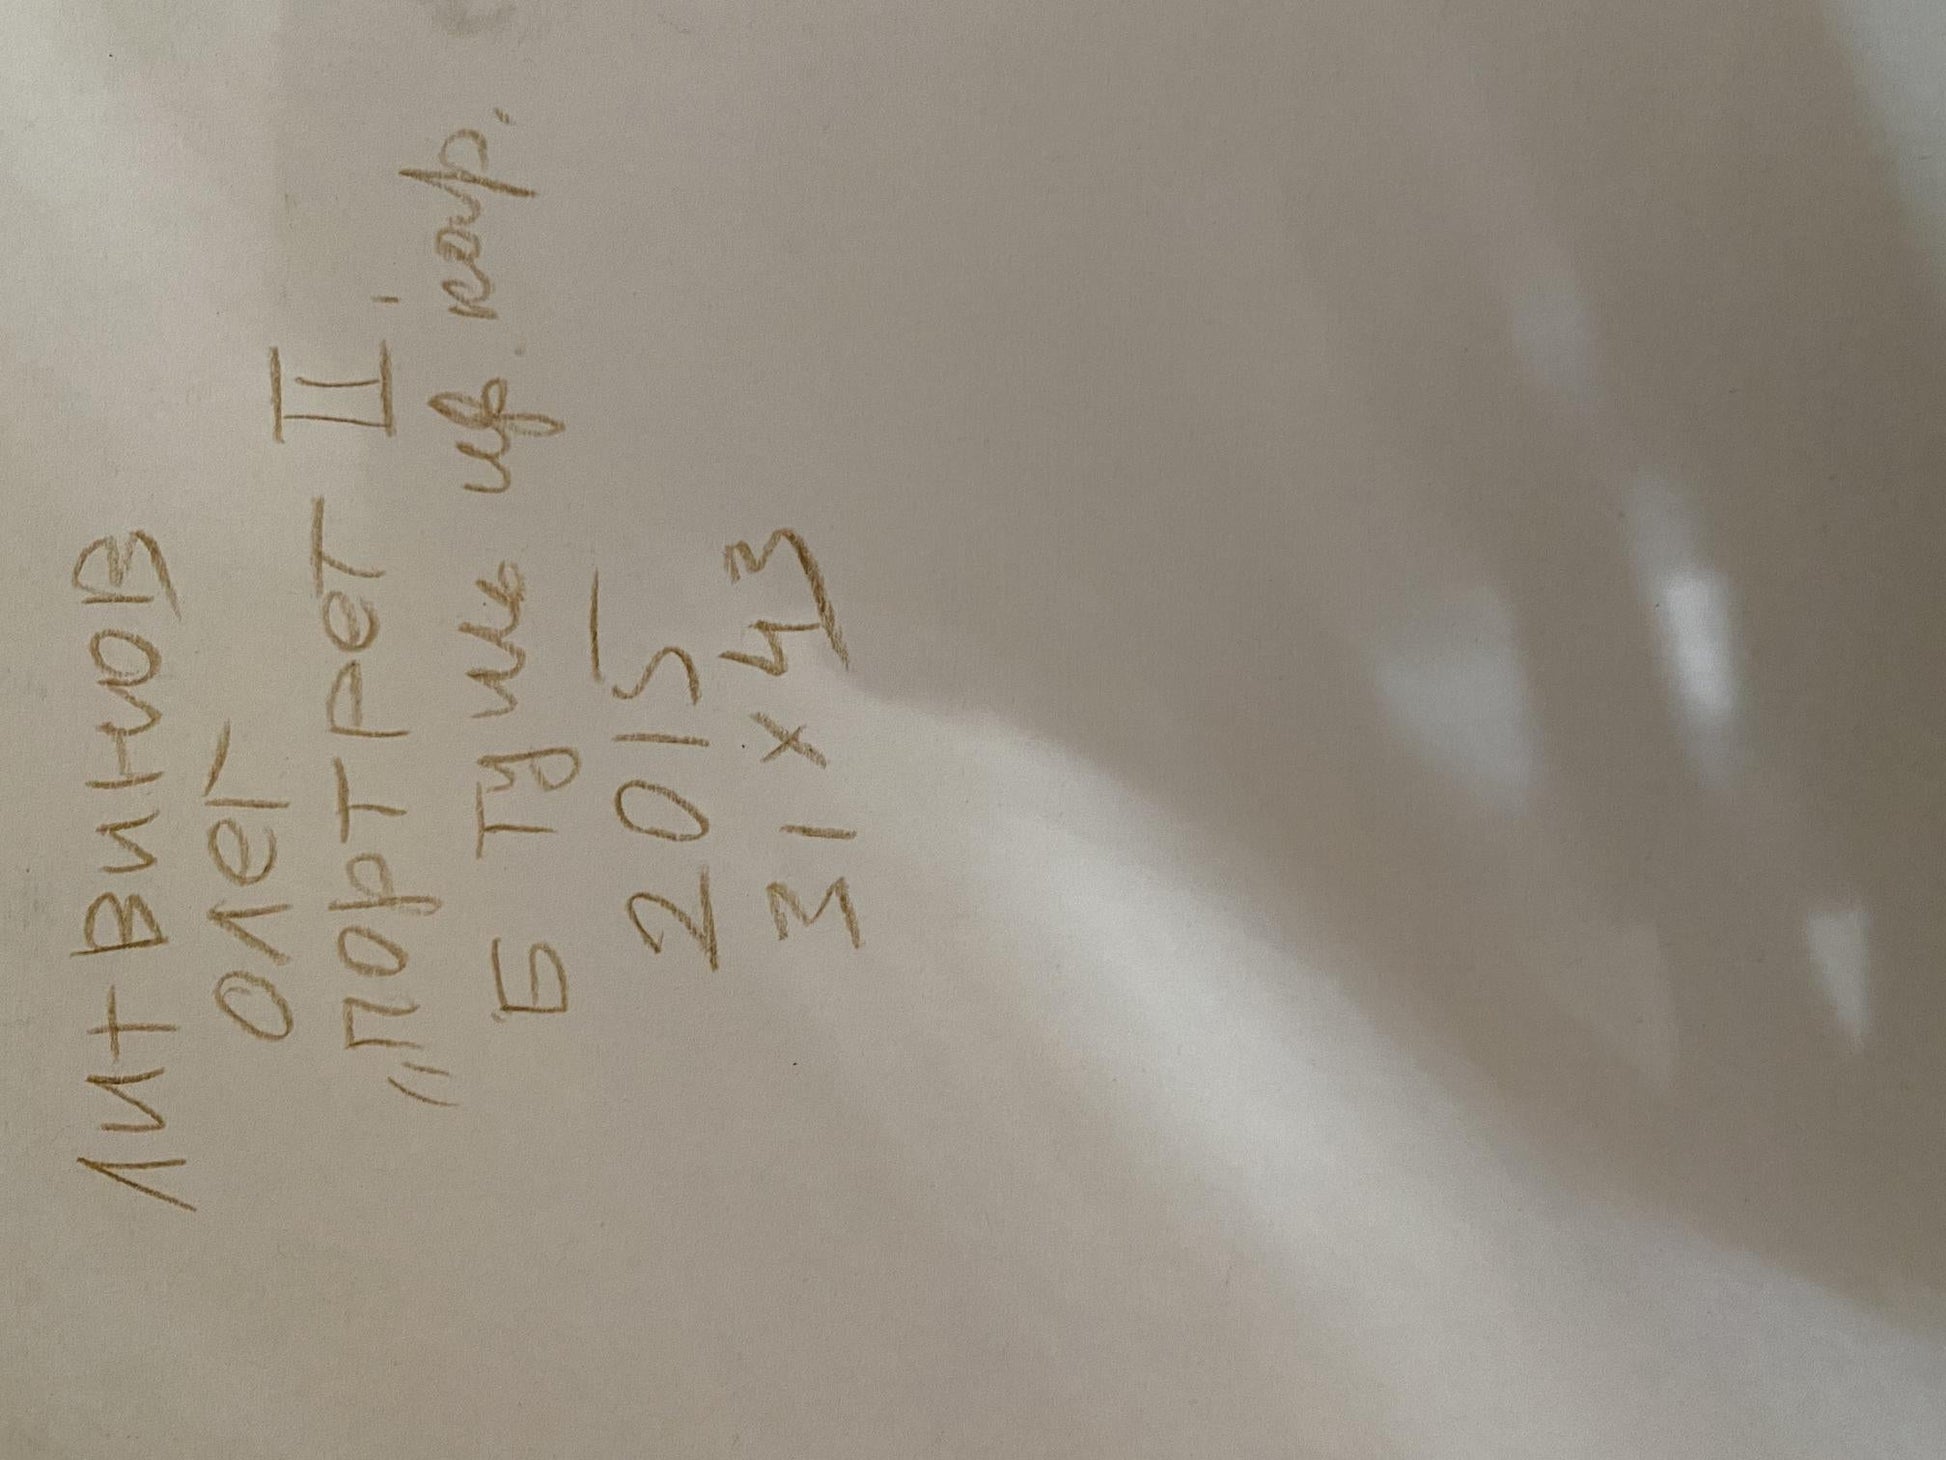 Литвинов
Олег
„Портрет II"
Б тушь цв. кар.
2015
31 x 43